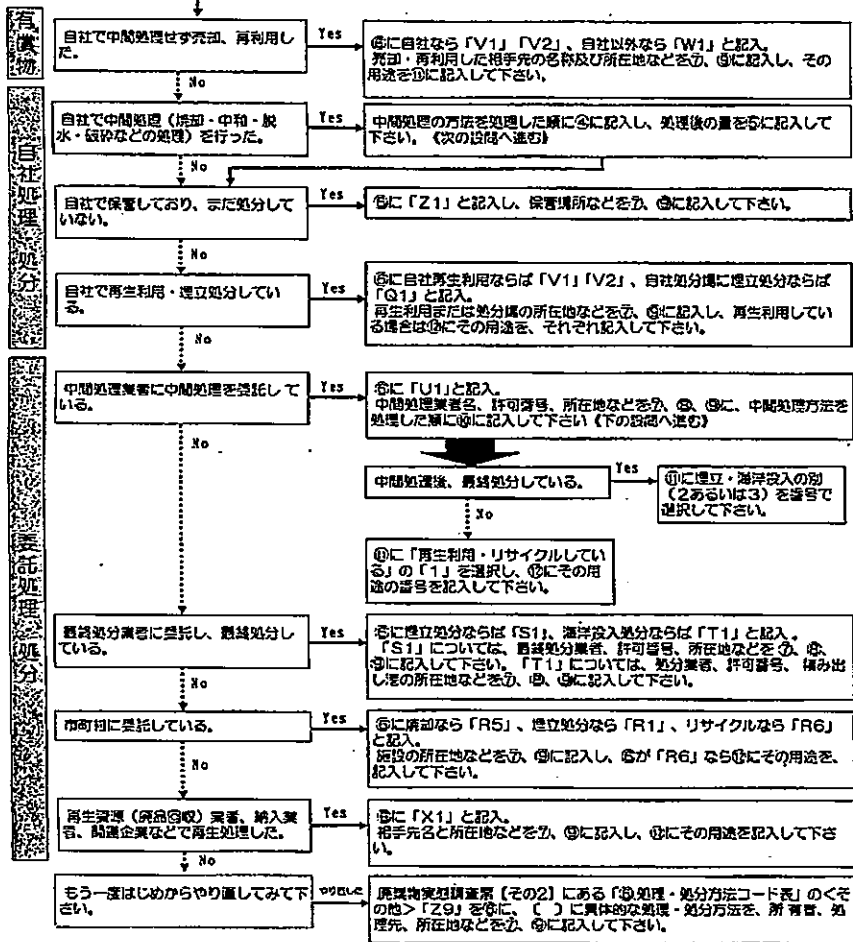 有償物
自社で中間処理せず売却、再利用し
た。
Yes
⑥に自社なら「V1」「V2」、自社以外なら「W1」と記入。
売却・再利用した相手先の名称及び所在地などを⑦、⑨に記入し、その
用途を⑫に記入して下さい。
No
自社処理・処分
自社で中間処理(焼却・中和・脱
水・破砕などの処理)を行った。
Yes
中間処理の方法を処理した順に④に記入し、処理後の量を⑤に記入して
下さい。《次の設問へ進む》
No
自社で保管しており、まだ処分して
いない。
Yes
⑥に「Z1」と記入し、保管場所などを⑦、⑨に記入して下さい。
No
自社で再生利用・埋立処分してい
る。
Yes
⑥に自社再生利用ならば「V1」「V2」、自社処分場に埋立処分ならば
「Q1」と記入。
再生利用または処分場の所在地などを⑦、⑨に記入し、再生利用してい
る場合は⑫にその用途を、それぞれ記入して下さい。
No
委託処理・処分
中間処理業者に中間処理を委託して
いる。
Yes
⑥に「U1」と記入。
中間処理業者名、許可番号、所在地などを⑦、⑧、⑨に、中間処理方法を
処理した順に⑩に記入して下さい《下の設問へ進む》
No
中間処理後、最終処分している。
Yes
⑪に埋立・海洋投入の別
(2あるいは3)を番号で
選択して下さい。
No
⑪に「再生利用・リサイクルしてい
る」の「1」を選択し、⑫にその用
途の番号を記入して下さい。
最終処分業者に委託し、最終処分し
ている。
Yes
⑥に埋立処分ならば「S1」、海洋投入処分ならば「T1」と記入。
「S1」については、最終処分業者、許可番号、所在地などを⑦、⑧、
⑨に記入して下さい。「T1」については、処分業者、許可番号、積み出
し港の所在地などを⑦、⑧、⑨に記入して下さい。
No
市町村に委託している。
Yes
⑥に焼却なら「R5」、埋立処分なら「R1」、リサイクルなら「R6」
と記入。
施設の所在地などを⑦、⑨に記入し、⑥が「R6」なら⑫にその用途を、
記入して下さい。
No
再生資源(廃品回収)業者、納入業
者、関連企業などで再生処理した。
Yes
⑥に「X1」と記入。
相手先名と所在地などを⑦、⑨に記入し、⑫にその用途を記入して下さ
い。
No
もう一度はじめからやり直してみて下
さい。
やり直した
廃棄物実態調査票【その2】にある「⑥処理・処分方法コード表」の<そ
の他>「Z9」を⑥に、〔 〕に具体的な処理・処分方法を、所有者、処
理先、所在地などを⑦、⑨に記入して下さい。